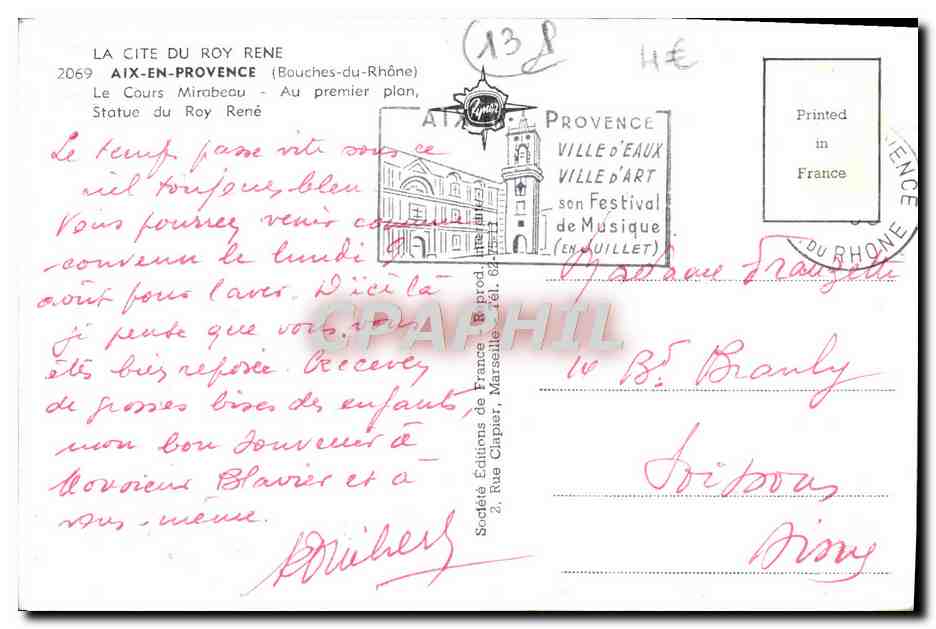 13
4€
LA CITE DU ROY RENE
2069 AIX-EN-PROVENCE (Bouches-du-Rhône)
Le Cours Mirabeau - Au premier plan,
Statue du Roy René
Le temps passe vite sous ce
ciel toujours bleu
Vous pourrez venir comme
convenu le lundi 9
août pour l'aver. D'ici là
je pense que vous vous
êtes bien reposée. Recevez
de grosses bises des enfants,
mon bon souvenir à
Monsieur Blavier et à
vous-même.
AIX PROVENCE
VILLE D'EAUX
VILLE D'ART
son Festival
de Musique
(EN JUILLET)
Printed
in
France
DU RHONE
Société Éditions de France - Reprod.
2, Rue Clapier, Marseille - Tél. 62-
Madame
14 Bd Branly
Soissons
Aisne
CPAPHIL